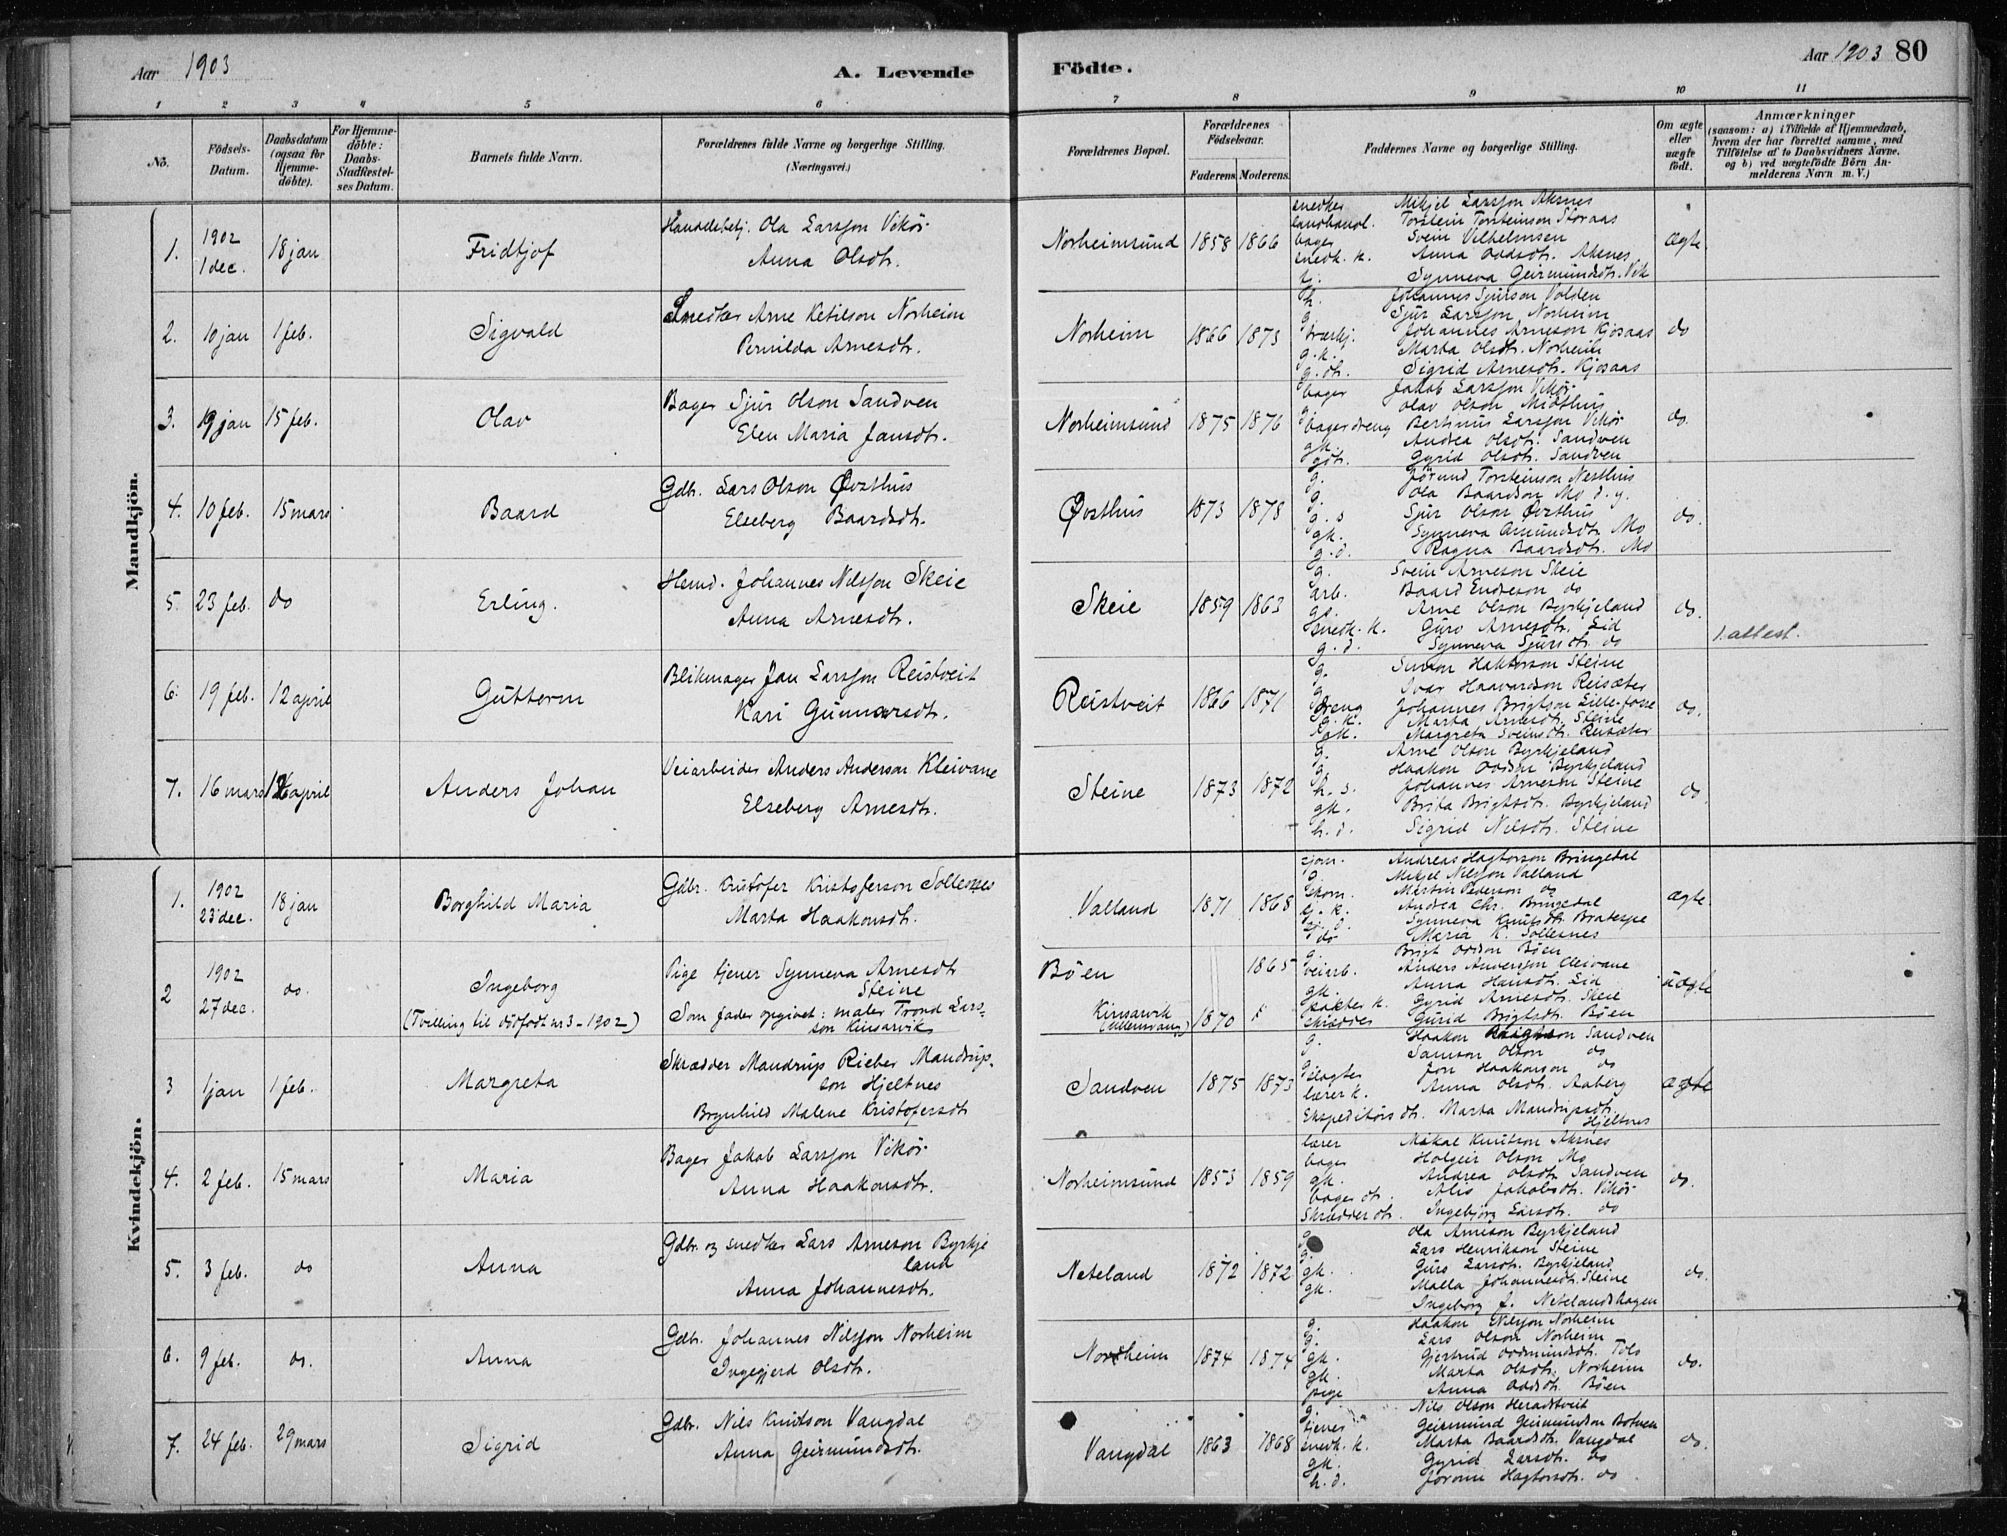 Aar 1903
A. Levende Födte.
Aar 1903 80
1 2 3 4 5 6 7 8 9 10 11
No.
Födsels-Datum.
Daabsdatum (ogsaa for Hjemme-döbte).
For Hjemme-döbte: Daabs-Stadfestel-ses Datum.
Barnets fulde Navn.
Forældrenes fulde Navne og borgerlige Stilling.
(Næringsvei.)
Forældrenes Bopæl.
Forældrenes Födselsaar.
Faderens. Moderens.
Faddernes Navne og borgerlige Stilling.
Om ægte eller uægte födt.
Anmærkninger
(saasom: a) i Tilfælde af Hjemmedaab,
hvem der har forrettet samme, med
Tilföielse af to Daabsvidners Navne,
og b) ved uægtefödte Börn An-
melderens Navn m. V.)
Mandkjön.
1. 1902 1 dec. 18 jan Fridtjof
Handelsbetj. Ola Larsson Vikør
Anna Olsdtr.
Norheimsund 1858 1866
snedker Mikjel Larsson Aksnes
landhandl. Torstein Torsteinson Storaas
bager Svein Vilhelmsen
snedk. k. Anna Oddsdtr. Aksnes
Synneva Geirmundsdtr. Vik
ægte.
2. 10 jan 1 feb. Sigvald
Snedker Arne Ketilson Norheim
Pernilda Arnesdtr.
Norheim 1866 1873
h. Johannes Sjurson Volden
g. Sjur Larsson Norheim
Johannes Arneson Kjosaas
g.k. Marta Olsdtr. Norheim
g.dtr. Sigrid Arnesdtr. Kjosaas
do
3. 19 jan 15 feb. Olav
Bager Sjur Olson Sandven
Elen Maria Jansdtr.
Norheimsund 1875 1876
bager Jakob Larsson Vikør
g. Olav Olson Midthus
bagerdreng Bertinus Larsson Vikør
gk. Andrea Olsdtr. Sandven
gdt. Gyrid Olsdtr. Sandven
do.
4. 10 feb. 15 mars Baard
Gdbr. Lars Olson Øvsthus
Elseberg Baardsdtr.
Øvsthus 1873 1878
g. Jørund Torsteinson Nesthus
g. Ola Baardson Mo d.y.
g.s Sjur Olson Øvsthus
gk. Synneva Amundsdtr. Mo
g.d. Ragna Baardsdtr. Mo
do.
5. 23 feb. do Erling.
Hemd. Johannes Nilsson Skeie
Anna Arnesdtr.
Skeie 1859 1863
g. Svein Arneson Skeie
arb. Baard Endreson do
gs. Arne Olson Byrkjeland
snedk. k. Guro Arnesdtr. Lid
g.d. Synneva Sjursdtr. do
do.
1. attest.
6. 19 feb. 12 april Guttorm
Blikmager Jan Larsson Reistveit
Kari Gunnarsdtr.
Reistveit 1866 1871
g. Simon Haktorson Steine
g. Ivar Haavardson Reisæter
dreng Johannes Brigtson Lille-fosse
g.k. Marta Arnesdtr. Steine
gk. Margreta Sveinsdtr. Reisæter
do.
7. 16 mars 12 april Anders Johan
Veiarbeider Anders Anderson Kleivane
Elseberg Arnesdtr.
Steine 1873 1872
g. Arne Olson Byrkjeland
g. Haakon Oddson Byrkjeland
h.s. Johannes Arneson Steine
gk. Brita Brigtsdtr. Byrkjeland
h.d. Sigrid Nilsdtr. Steine
do.
Kvindekjön.
1. 1902 23 dec. 18 jan Borghild Maria
Gdbr. Kristofer Kristoferson Sollesnes
Marta Haakonsdtr.
Valland 1871 1868
Andreas Hagtorson Bringedal
g. Mikjel Nilsson Valland
skom. Martin Pederson do
Andrea Chr. Bringedal
Synneva Knutsdtr. Bratespe
do Maria K. Sollesnes
ægte.
2 1902 27 dec. do. Ingeborg
(Tvilling til dødfødt nr 3 - 1902)
Pige tjener Synneva Arnesdtr
Steine
Som fader opgivet: maler Trond Lars-
son Kinsarvik
Bøen 1865
Kinsarvik (Ullensvang) 1870
g. Brigt Oddson Bøen
veiarb. Anders Andersson Kleivane
gk. Anna Hansdtr. Lid
Gyrid Arnesdtr. Skeie
skrædder Gurid Brigtsdtr. Bøen
uægte
3 1 jan 1 feb. Margreta
Skrædder Mandrup Rieber Mandrup-
son Hjeltnes
Brynhild Malene Kristofersdtr
Sandven 1875 1873
g. Haakon Sandven
Samson Olson do
Jon Haakonson do
lærer k. Anna Olsdtr. Aaberg
Ekspeditørsdtr. Marta Mandrupsdtr.
Hjeltnes
ægte
4. 2 feb. 15 mars Maria
Bager Jakob Larsson Vikør
Anna Haakonsdtr.
Norheimsund 1853 1859
lærer Mikal Knutson Aksnes
bager Holgeir Olson Mo
gk. Andrea Olsdtr. Sandven
bager dt. Alis Jakobsdtr. Vikør
Skrædder dtr. Ingebjørg Larsdtr. do
do.
5. 3 feb. do Anna
Gdbr. og snedker Lars Arneson Byrkje
land
Anna Johannesdtr.
Neteland 1872 1872
g. Ola Arneson Byrkjeland
g. Lars Henrikson Steine
gk. Guro Larsdtr. Byrkjeland
gk. Malla Johannesdtr. Steine
Ingeborg J. Netelandshagen
do.
6. 9 feb. do. Anna
Gdbr. Johannes Nilsson Norheim
Ingegjerd Olsdtr.
Norheim 1874 1874
g. Haakon Nilsson Norheim
g. Lars Olson Norheim
gk. Gjertrud Oddmundsdtr. Tolo
gk. Marta Olsdtr. Norheim
pige Anna Oddsdtr. Bøen
do.
7. 24 feb. 29 mars Sigrid
Gdbr. Nils Knutson Vangdal
Anna Geirmundsdtr.
Vangdal 1863 1868
g. Nils Olson Heradstveit
tjener Geirmund Geirmundson Botnen
snedk. k. Marta Baardsdtr. Vangdal
gk. Gyrid Larsdtr. do
h.d. Joronn Hagtorsdtr. do
do.